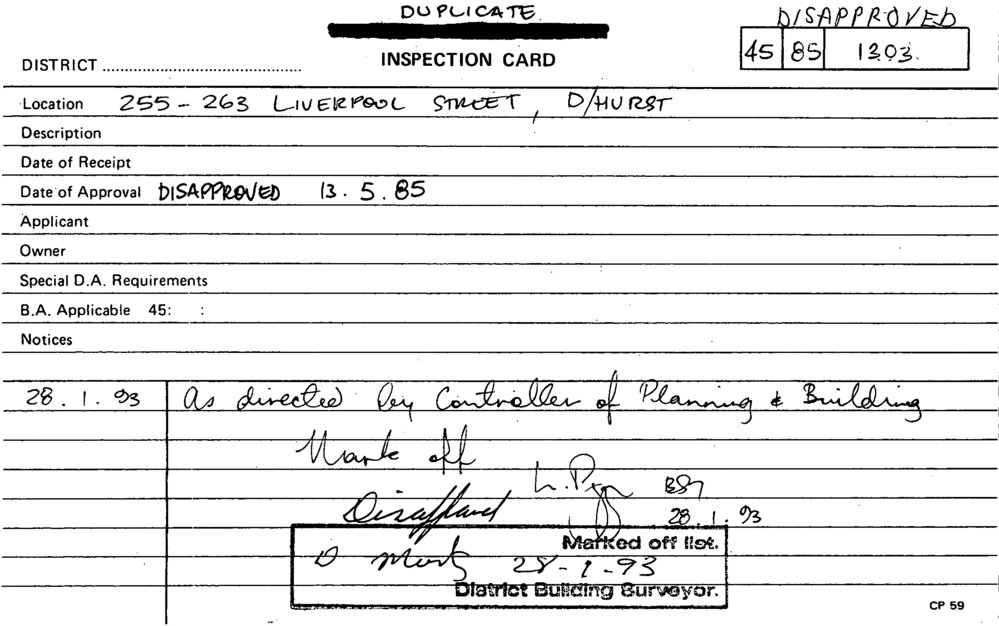 DUPLICATE
DISAPPROVED
45 85 1303.
DISTRICT
INSPECTION CARD
Location 255 - 263 LIVERPOOL STREET, D/HURST
Description
Date of Receipt
Date of Approval DISAPPROVED 13. 5. 85
Applicant
Owner
Special D.A. Requirements
B.A. Applicable 45: :
Notices
28. 1. 93 As directed by Controller of Planning & Building
Mark off
28. 1. 93
Marked off list.
28-1-93
District Building Surveyor.
CP 59